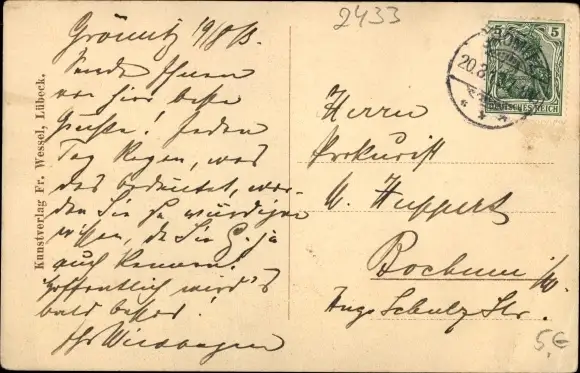 2433
Grömitz 19/8 13.
Sende Ihnen
von hier beste
Grüße! Jeden
Tag Regen, was
das bedeutet, wer-
den Sie zu würdigen
wissen, da Sie G. ja
auch kennen.
Hoffentlich wird's
bald besser!
Ihr
Kunstverlag Fr. Wessel, Lübeck.
GRÖMITZ
20.8.
5
DEUTSCHES REICH
Herrn
Prokurist
W. Huppert
Bochum i/W.
Hugo Schulz Str.
5,€